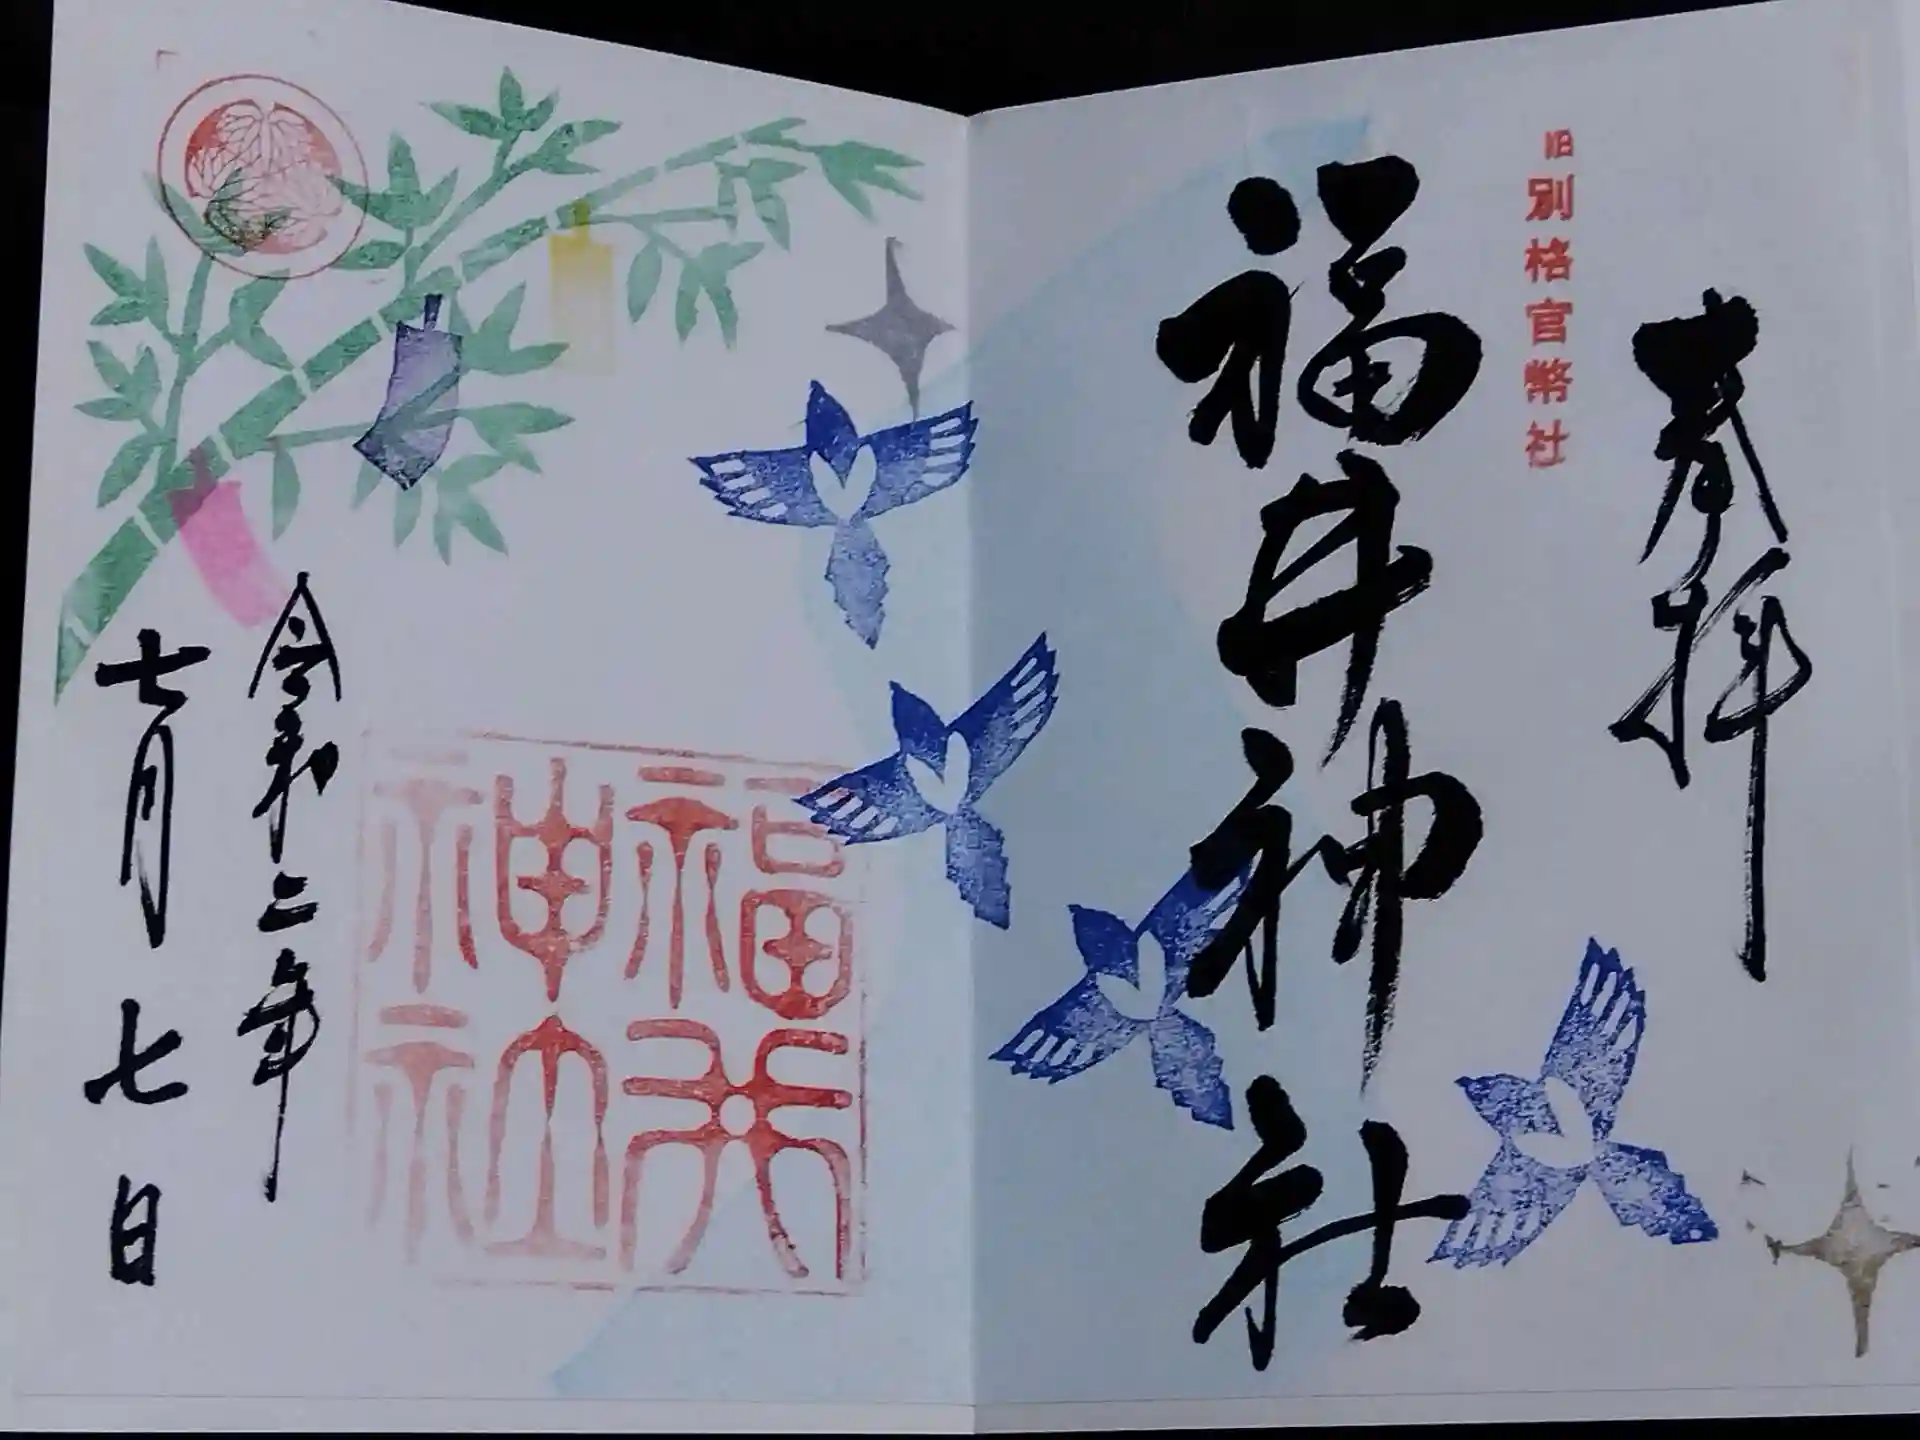 奉拝
旧別格官幣社
福井神社
福井神社
令和二年
七月七日